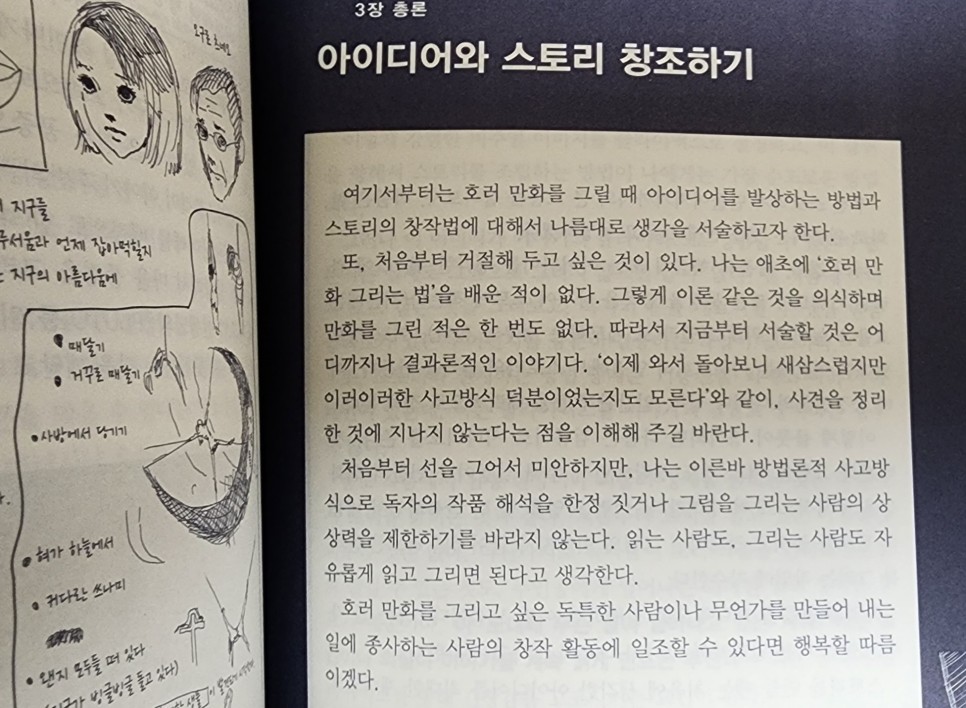 지구를
무서움과 언제 잡아먹힐지
지구의 아름다움에
• 때달기
• 거꾸로 때달기
• 사방에서 당기기
• 혀가 하늘에서
• 커다란 쓰나미
• 왠지 모두들 떠 있다
지구가 빙글빙글 돌고 있다)
3장 총론
아이디어와 스토리 창조하기
여기서부터는 호러 만화를 그릴 때 아이디어를 발상하는 방법과
스토리의 창작법에 대해서 나름대로 생각을 서술하고자 한다.
또, 처음부터 거절해 두고 싶은 것이 있다. 나는 애초에 ‘호러 만
화 그리는 법’을 배운 적이 없다. 그렇게 이론 같은 것을 의식하며
만화를 그린 적은 한 번도 없다. 따라서 지금부터 서술할 것은 어
디까지나 결과론적인 이야기다. ‘이제 와서 돌아보니 새삼스럽지만
이러이러한 사고방식 덕분이었는지도 모른다’와 같이, 사견을 정리
한 것에 지나지 않는다는 점을 이해해 주길 바란다.
처음부터 선을 그어서 미안하지만, 나는 이른바 방법론적 사고방
식으로 독자의 작품 해석을 한정 짓거나 그림을 그리는 사람의 상
상력을 제한하기를 바라지 않는다. 읽는 사람도, 그리는 사람도 자
유롭게 읽고 그리면 된다고 생각한다.
호러 만화를 그리고 싶은 독특한 사람이나 무언가를 만들어 내는
일에 종사하는 사람의 창작 활동에 일조할 수 있다면 행복할 따름
이겠다.